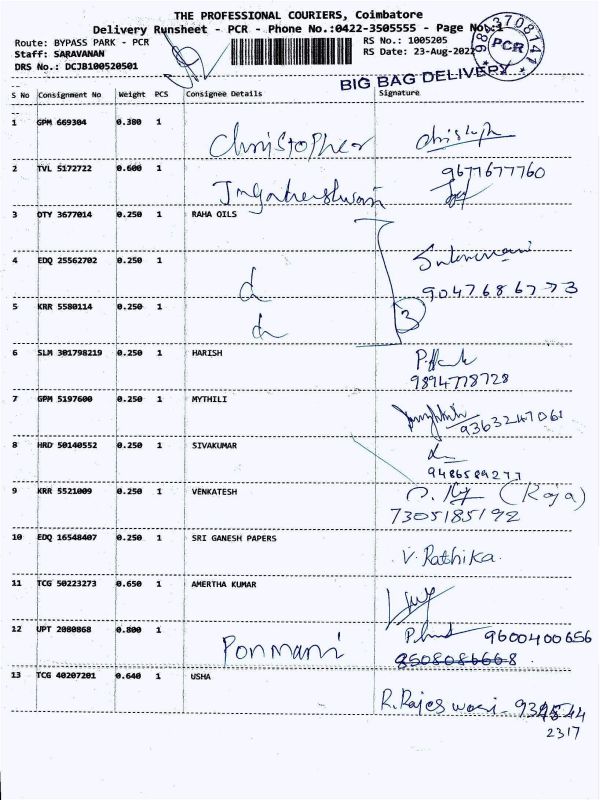 THE PROFESSIONAL COURIERS, Coimbatore
Delivery Runsheet - PCR - Phone No.:0422-3505555 - Page No.:1
Route: BYPASS PARK - PCR
RS No.: 1005205
Staff: SARAVANAN
RS Date: 23-Aug-2022
DRS No.: DCJB100520501
9843708141
PCR
BIG BAG DELIVERY
S No Consignment No Weight PCS Consignee Details Signature
1 GPM 669304 0.380 1
Christopher
2 TVL 5172722 0.600 1
9677677760
3 OTY 3677014 0.250 1 RAHA OILS
4 EDQ 25562702 0.250 1
9047686773
5 KRR 5580114 0.250 1
3
6 SLM 301798219 0.250 1 HARISH
9894778728
7 GPM 5197600 0.250 1 MYTHILI
9363247061
8 HRD 50140552 0.250 1 SIVAKUMAR
9486589277
9 KRR 5521009 0.250 1 VENKATESH
(Roja)
7305185192
10 EDQ 16548407 0.250 1 SRI GANESH PAPERS
V. Rathika.
11 TCG 50223273 0.650 1 AMERTHA KUMAR
12 UPT 2080868 0.800 1
Ponmani
9600400656
13 TCG 40207201 0.640 1 USHA
2317